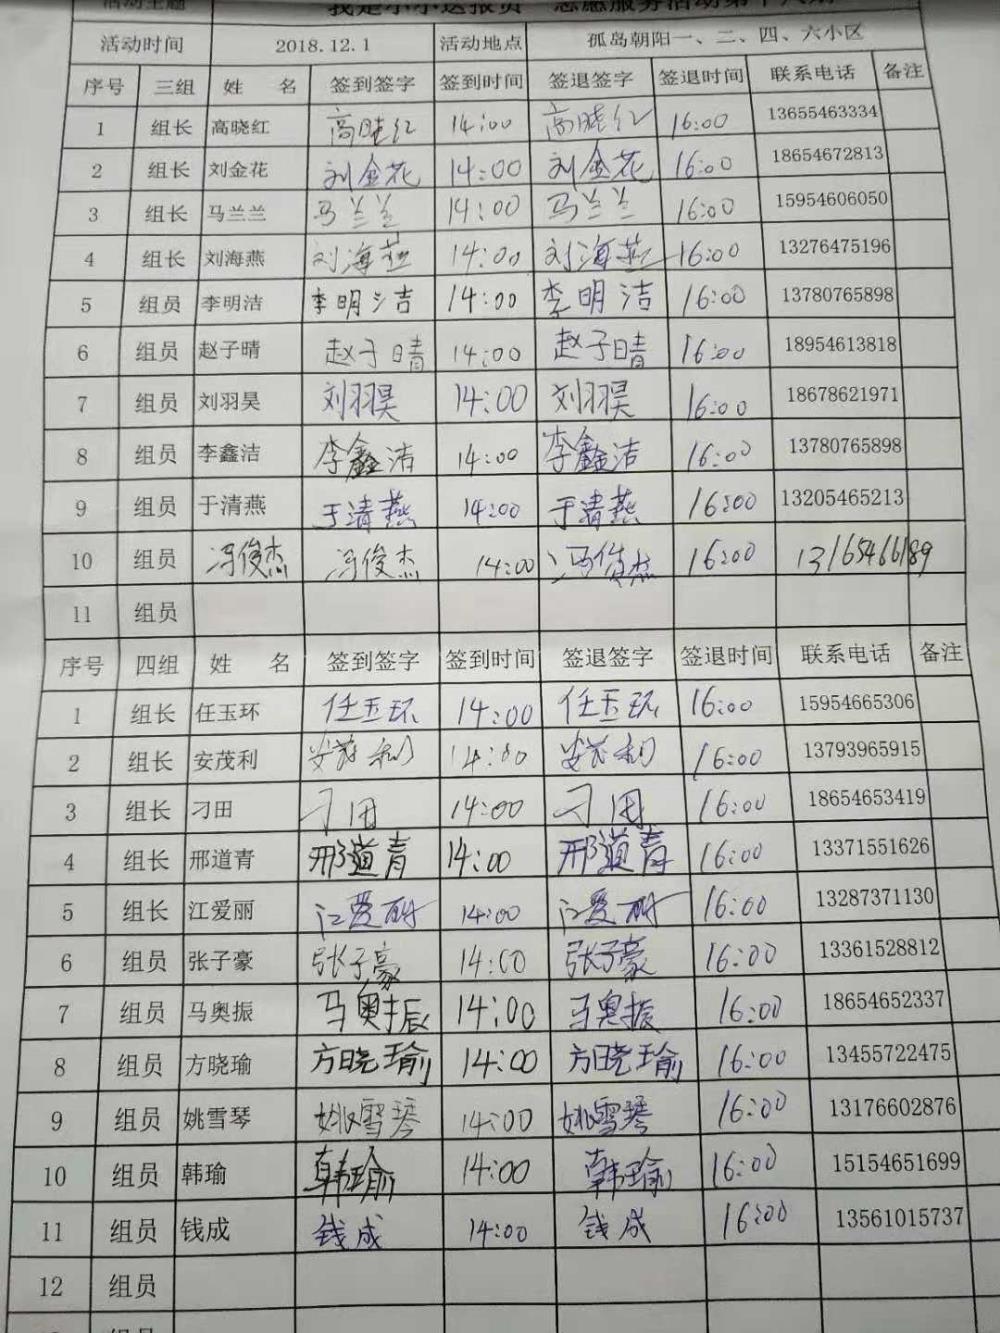 活动主题 我是小小送报员 志愿服务活动第十八期
活动时间 2018.12.1 活动地点 孤岛朝阳一、二、四、六小区
序号 三组 姓 名 签到签字 签到时间 签退签字 签退时间 联系电话 备注
1 组长 高晓红 高晓红 14:00 高晓红 16:00 13655463334
2 组长 刘金花 刘金花 14:00 刘金花 16:00 18654672813
3 组长 马兰兰 马兰兰 14:00 马兰兰 16:00 15954606050
4 组长 刘海燕 刘海燕 14:00 刘海燕 16:00 13276475196
5 组员 李明洁 李明洁 14:00 李明洁 16:00 13780765898
6 组员 赵子晴 赵子晴 14:00 赵子晴 16:00 18954613818
7 组员 刘羽昊 刘羽昊 14:00 刘羽昊 16:00 18678621971
8 组员 李鑫洁 李鑫洁 14:00 李鑫洁 16:00 13780765898
9 组员 于清燕 于清燕 14:00 于清燕 16:00 13205465213
10 组员 冯俊杰 冯俊杰 14:00 冯俊杰 16:00 13165466189
11 组员
序号 四组 姓 名 签到签字 签到时间 签退签字 签退时间 联系电话 备注
1 组长 任玉环 任玉环 14:00 任玉环 16:00 15954665306
2 组长 安茂利 安茂利 14:00 安茂利 16:00 13793965915
3 组长 刁田 刁田 14:00 刁田 16:00 18654653419
4 组长 邢道青 邢道青 14:00 邢道青 16:00 13371551626
5 组长 江爱丽 江爱丽 14:00 江爱丽 16:00 13287371130
6 组员 张子豪 张子豪 14:00 张子豪 16:00 13361528812
7 组员 马奥振 马奥振 14:00 马奥振 16:00 18654652337
8 组员 方晓瑜 方晓瑜 14:00 方晓瑜 16:00 13455722475
9 组员 姚雪琴 姚雪琴 14:00 姚雪琴 16:00 13176602876
10 组员 韩瑜 韩瑜 14:00 韩瑜 16:00 15154651699
11 组员 钱成 钱成 14:00 钱成 16:00 13561015737
12 组员
组员